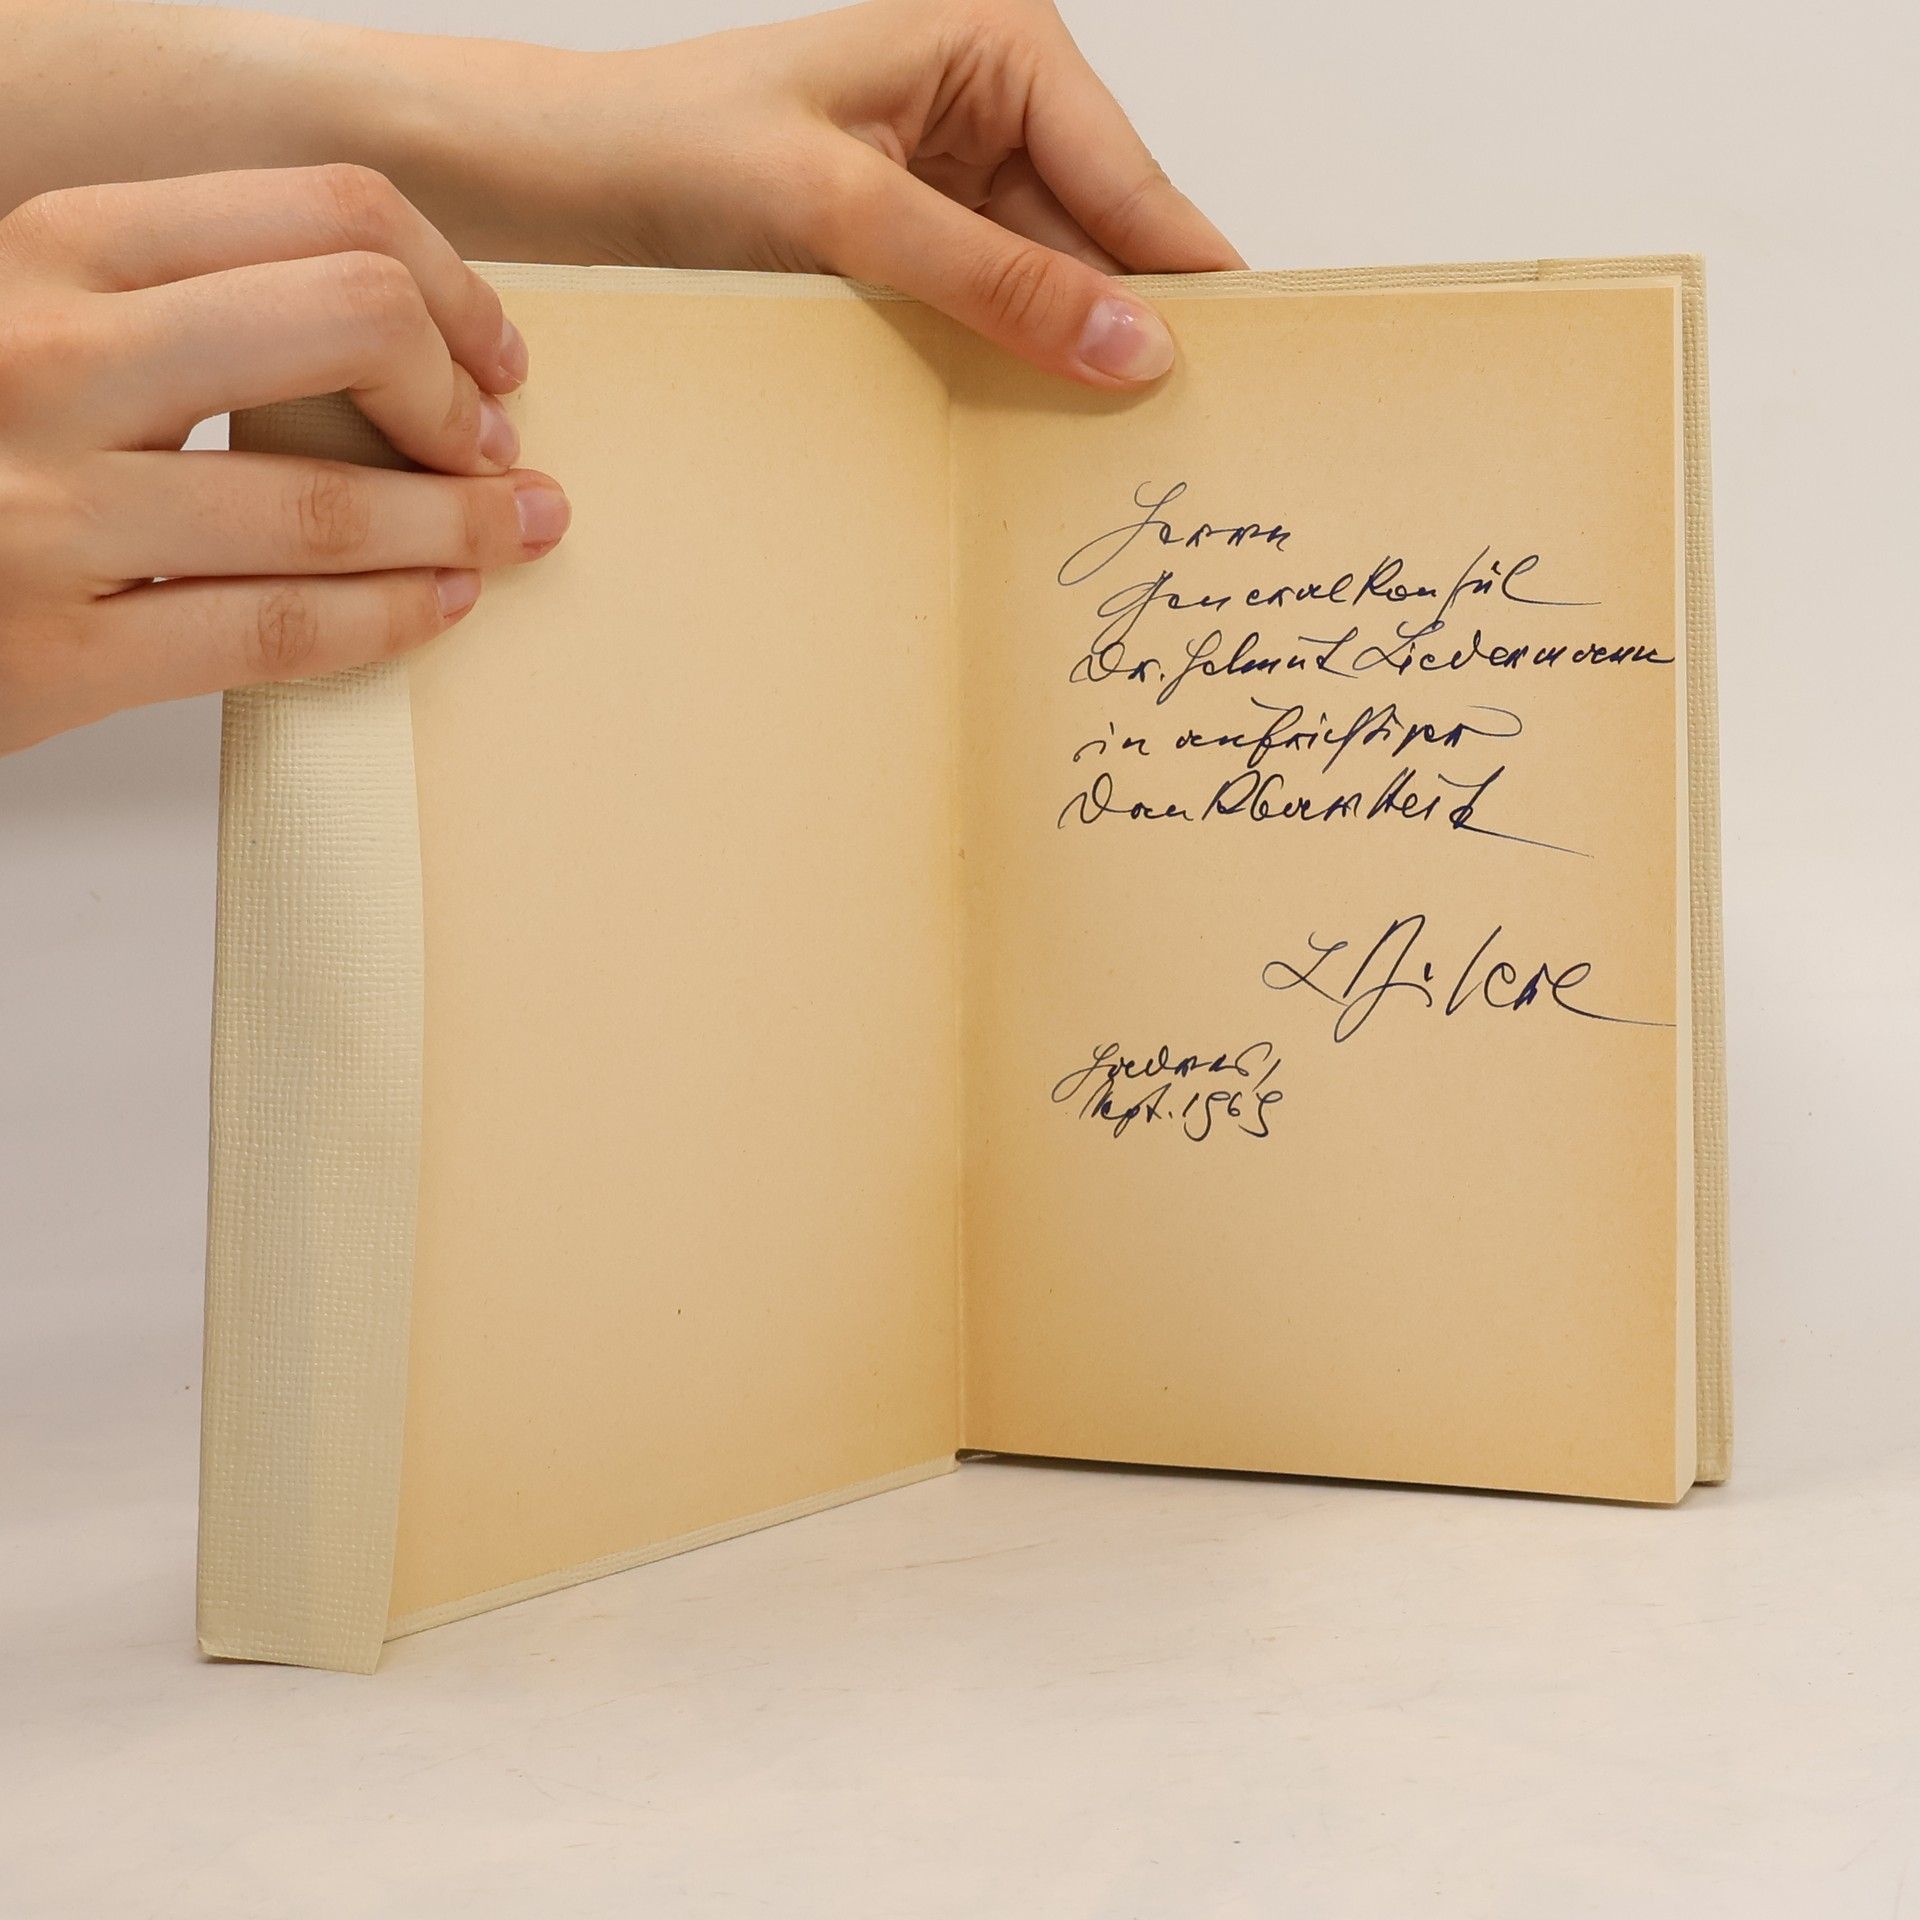 Herrn
Generalkonsul
Dr. Helmut Liedermann
in aufrichtiger
Dankbarkeit
Sept. 1969